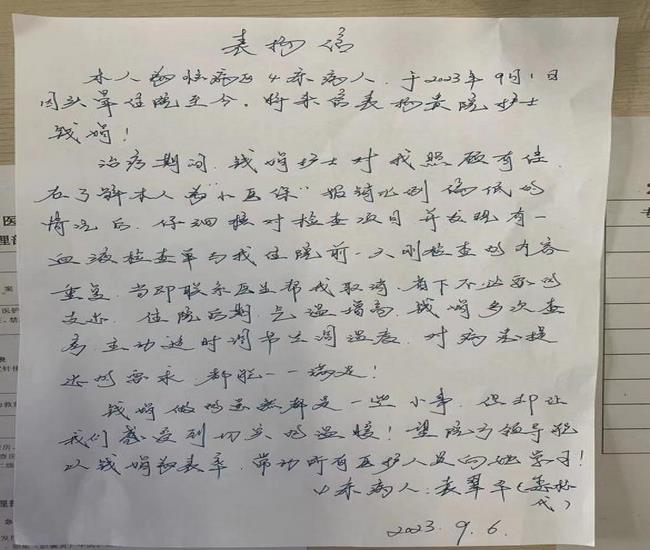 表扬信
本人为忄病区4床病人，于2023年9月1日
因头晕住院至今，特来信表扬贵院护士
钱娟！
治疗期间，钱娟护士对我照顾有佳，
在了解本人为“小医保”报销比例偏低的
情况后，仔细核对检查项目，并发现有一
血液检查单与我住院前一天刚检查的内容
重复，当即联系医生帮我取消，省下不必要的
支出。住院后期，气温增高，钱娟多次查
房，主动适时调节空调温度，对病患提
出的要求，都能一一满足！
钱娟做的虽然都是一些小事，但却让
我们感受到切实的温暖！望院方领导能
以钱娟为表率，带动所有医护人员向她学习！
4床病人：袁翠
2023.9.6.
医
理